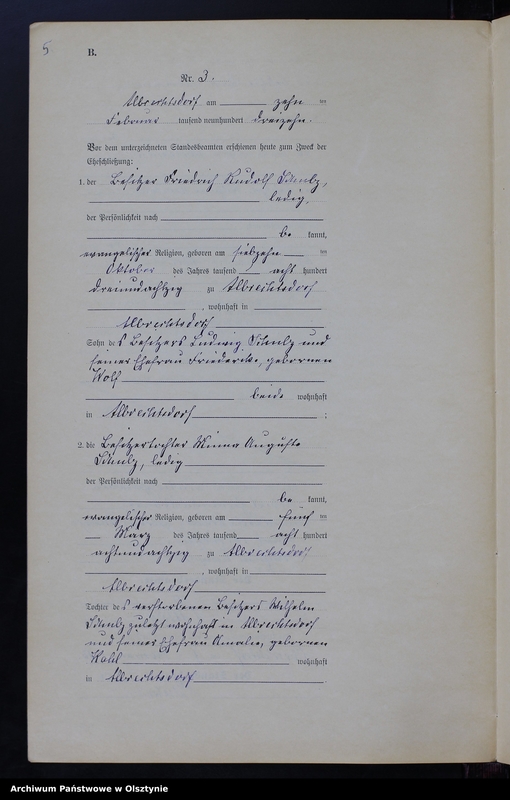 5
B.
Nr. 3.
Albrechtsdorf am zehn ten
Februar tausend neunhundert dreizehn.
Vor dem unterzeichneten Standesbeamten erschienen heute zum Zweck der
Eheschließung:
1. der Besitzer Friedrich Rudolf Schulz,
ledig,
der Persönlichkeit nach
be kannt,
evangelischer Religion, geboren am siebzehn ten
Oktober des Jahres tausend acht hundert
dreiundachtzig zu Albrechtsdorf
, wohnhaft in
Albrechtsdorf
Sohn des Besitzers Ludwig Schulz und
seiner Ehefrau Friederike, gebornen
Wolf
beide wohnhaft
in Albrechtsdorf ;
2. die Besitzertochter Minna Auguste
Schulz, ledig
der Persönlichkeit nach
be kannt,
evangelischer Religion, geboren am fünf ten
März des Jahres tausend acht hundert
achtundachtzig zu Albrechtsdorf
, wohnhaft in
Albrechtsdorf
Tochter des verstorbenen Besitzers Wilhelm
Schulz zuletzt wohnhaft in Albrechtsdorf
und seiner Ehefrau Amalie, gebornen
wohnhaft
in Albrechtsdorf
Archiwum Państwowe w Olsztynie